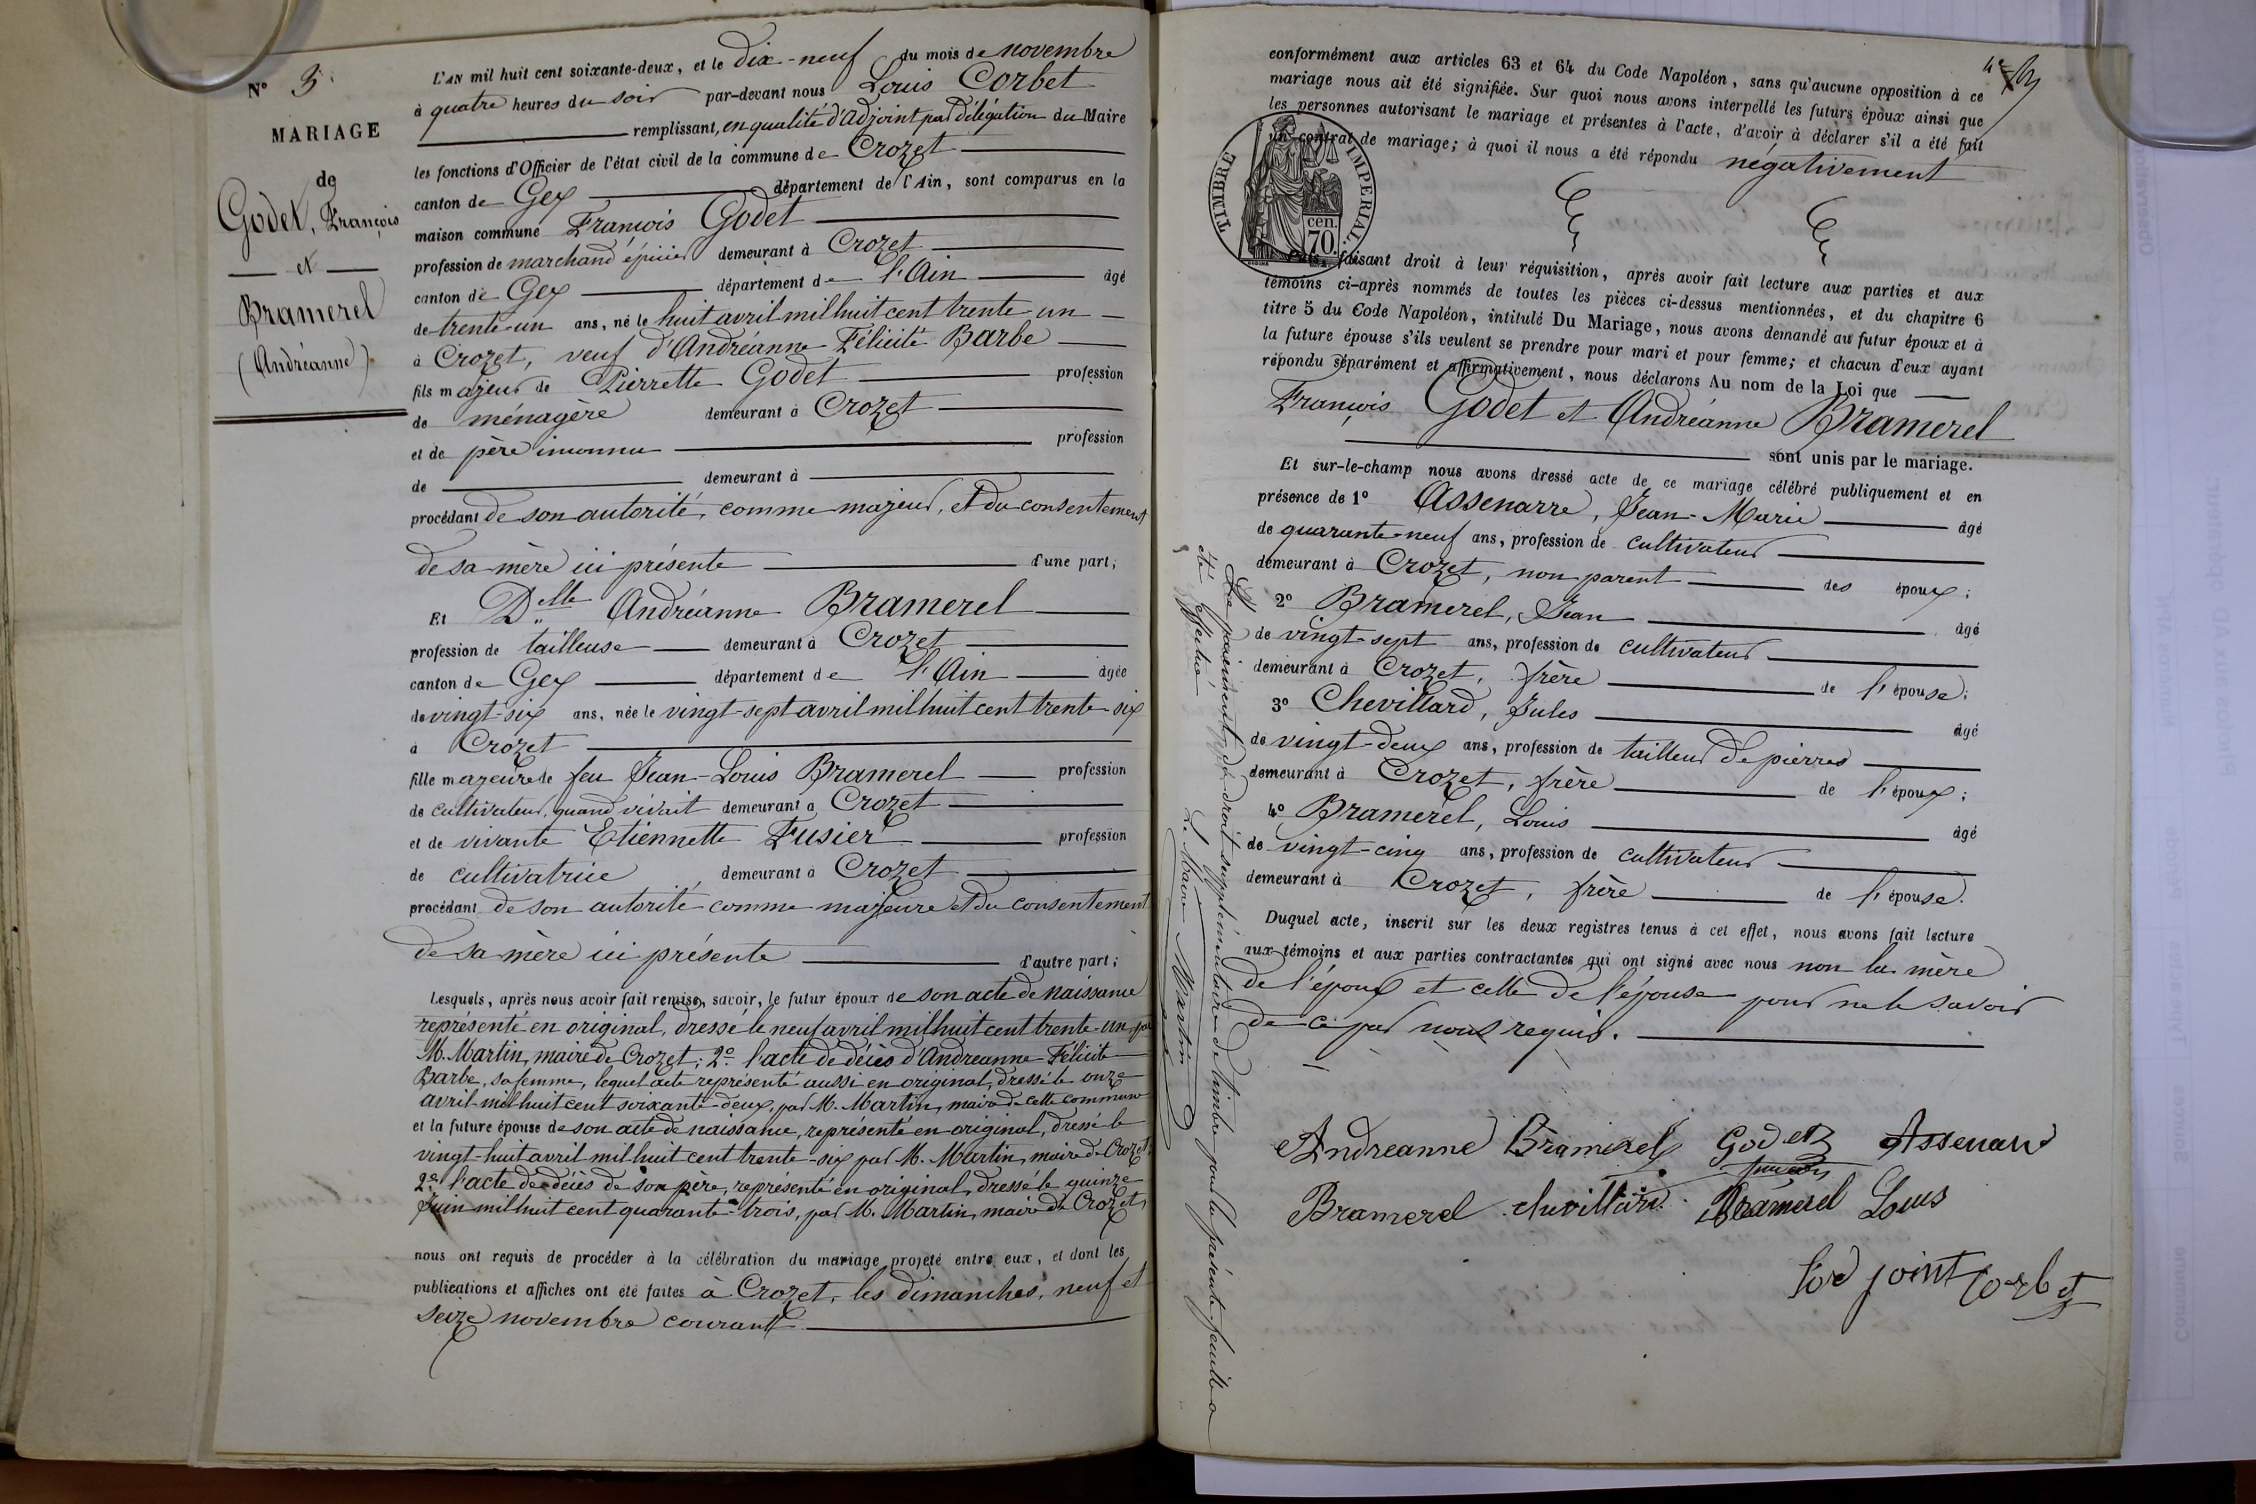 N° 3.
MARIAGE
de
Godet, François
et
Bramerel
(Andréanne).
L'AN mil huit cent soixante-deux, et le dix-neuf du mois de novembre
à quatre heures du soir par-devant nous Louis Corbet
remplissant, en qualité d'Adjoint par délégation du Maire
les fonctions d'Officier de l'état civil de la commune de Crozet
canton de Gex département de l'Ain, sont comparus en la
maison commune François Godet
profession de marchand épicier demeurant à Crozet
canton de Gex département de l'Ain âgé
de trente-un ans, né le huit avril mil huit cent trente-un
à Crozet, veuf d'Andréanne Félicité Barbe
fils majeur de Pierrette Godet profession
de ménagère demeurant à Crozet
et de père inconnu profession
de demeurant à
procédant de son autorité, comme majeur, et du consentement
de sa mère ici présente d'une part;
Et Delle Andréanne Bramerel
profession de tailleuse demeurant à Crozet
canton de Gex département de l'Ain âgée
de vingt-six ans, née le vingt-sept avril mil huit cent trente-six
à Crozet
fille majeure de feu Jean-Louis Bramerel profession
de cultivateur, quand vivait demeurant à Crozet
et de vivante Etiennette Fusier profession
de cultivatrice demeurant à Crozet
procédant de son autorité comme majeure et du consentement
de sa mère ici présente d'autre part;
Lesquels, après nous avoir fait remise, savoir, le futur époux de son acte de naissance
représenté en original, dressé le neuf avril mil huit cent trente-un par
M. Martin, maire de Crozet; 2° l'acte de décès d'Andreanne Félicité
Barbe, sa femme, lequel acte représenté aussi en original, dressé le onze
avril mil huit cent soixante-deux, par M. Martin, maire de cette commune
et la future épouse de son acte de naissance, représenté en original, dressé le
vingt-huit avril mil huit cent trente-six par M. Martin, maire de Crozet;
2° l'acte de décès de son père, représenté en original, dressé le quinze
Juin mil huit cent quarante-trois, par M. Martin, maire de Crozet,
nous ont requis de procéder à la célébration du mariage projeté entre eux, et dont les
publications et affiches ont été faites à Crozet, les dimanches, neuf et
seize novembre courant
conformément aux articles 63 et 64 du Code Napoléon, sans qu'aucune opposition à ce
mariage nous ait été signifiée. Sur quoi nous avons interpellé les futurs époux ainsi que
les personnes autorisant le mariage et présentes à l'acte, d'avoir à déclarer s'il a été fait
un contrat de mariage; à quoi il nous a été répondu négativement
TIMBRE IMPERIAL.
cen.
70.
Puis, faisant droit à leur réquisition, après avoir fait lecture aux parties et aux
témoins ci-après nommés de toutes les pièces ci-dessus mentionnées, et du chapitre 6
titre 5 du Code Napoléon, intitulé Du Mariage, nous avons demandé au futur époux et à
la future épouse s'ils veulent se prendre pour mari et pour femme; et chacun d'eux ayant
répondu séparément et affirmativement, nous déclarons Au nom de la Loi que
François Godet et Andréanne Bramerel
sont unis par le mariage.
Et sur-le-champ nous avons dressé acte de ce mariage célébré publiquement et en
présence de 1° Assenarre, Jean-Marie âgé
de quarante-neuf ans, profession de cultivateur
demeurant à Crozet, non parent des époux;
2° Bramerel, Jean âgé
de vingt-sept ans, profession de cultivateur
demeurant à Crozet, frère de l'épouse;
3° Chevillard, Jules âgé
de vingt-deux ans, profession de tailleur de pierres
demeurant à Crozet, frère de l'époux;
4° Bramerel, Louis âgé
de vingt-cinq ans, profession de cultivateur
demeurant à Crozet, frère de l'épouse.
Duquel acte, inscrit sur les deux registres tenus à cet effet, nous avons fait lecture
aux témoins et aux parties contractantes qui ont signé avec nous non la mère
de l'époux et celle de l'épouse pour ne le savoir
de ce par nous requis.
Le paiement du droit supplémentaire de timbre pour la présente feuille a
été effectué
Le Maire Martin
Andreanne Bramerel Godet Assenare
Bramerel chevillard Bramerel Louis
joint Corbet